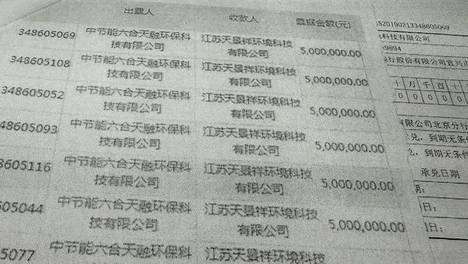 出票人 收款人 票据金额(元)
348605069 中节能六合天融环保科技有限公司 江苏天景祥环境科技有限公司 5,000,000.00
348605108 中节能六合天融环保科技有限公司 江苏天景祥环境科技有限公司 5,000,000.00
348605052 中节能六合天融环保科技有限公司 江苏天景祥环境科技有限公司 5,000,000.00
48605093 中节能六合天融环保科技有限公司 江苏天景祥环境科技有限公司 5,000,000.00
8605116 中节能六合天融环保科技有限公司 江苏天景祥环境科技有限公司 5,000,000.00
605044 中节能六合天融环保科技有限公司 江苏天景祥环境科技有限公司 5,000,000.00
5077 中节能六合天融环保科 江苏天景祥环境科技
S20190213348605069
科技有限公司
9894
十 万 千 百 十
0 0 0 0 0
有限公司北京分
兑,到期无条
,到期无条件
承兑日期
日:
日: